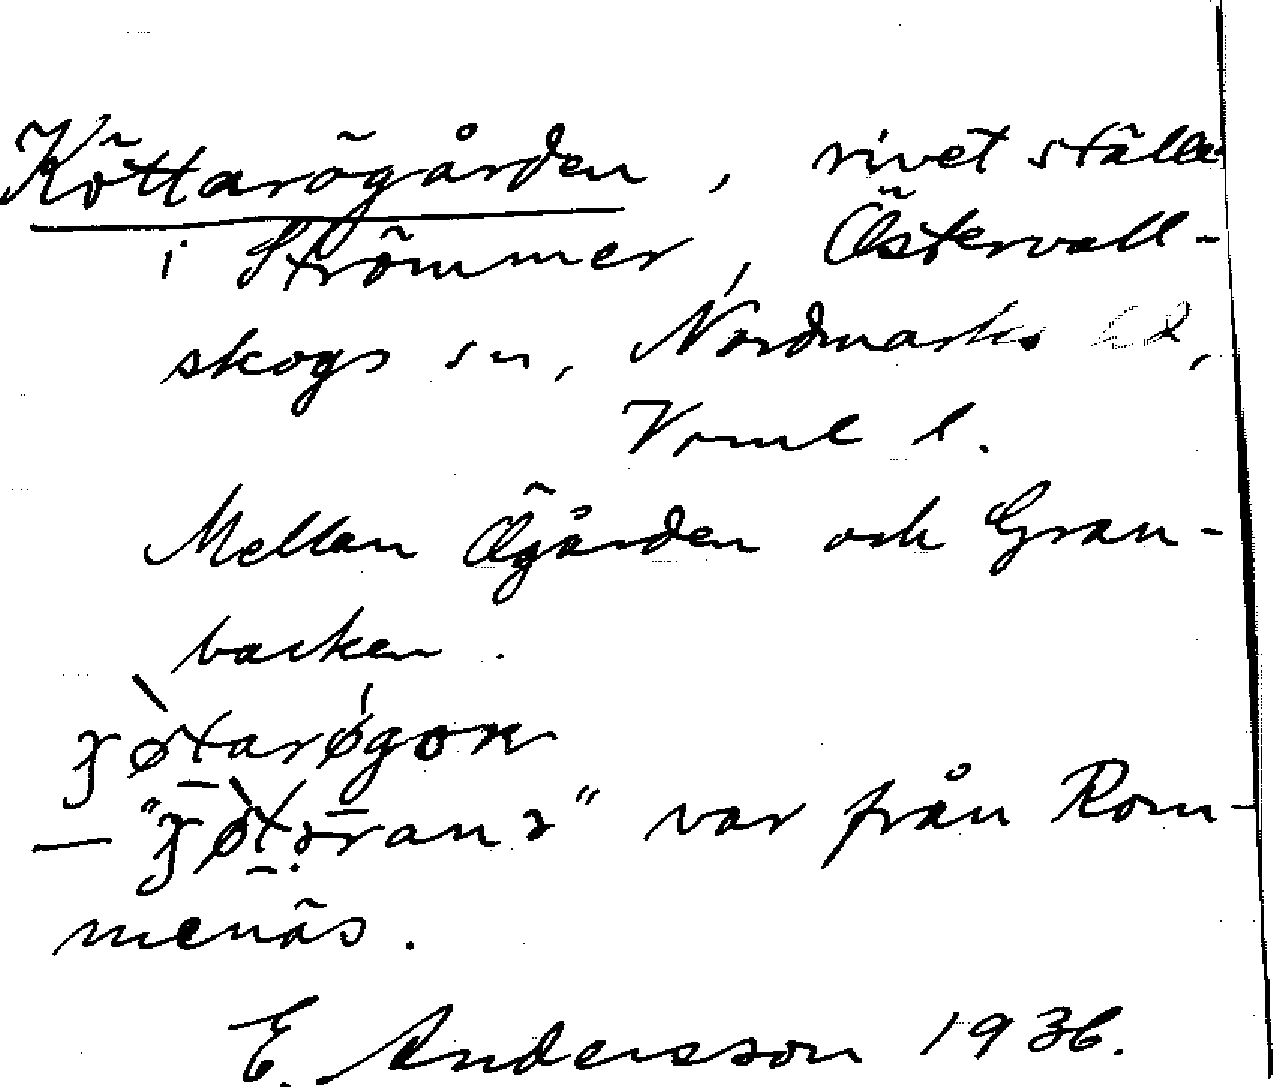 Köttarögården, rivet ställe
i Strömmer, Östervall-
skogs sn, Nordmarks hd,
Vrml l.
Mellan Ögården och Gran-
backen.
— var från Rom-
menäs.
E. Andersson 1936.